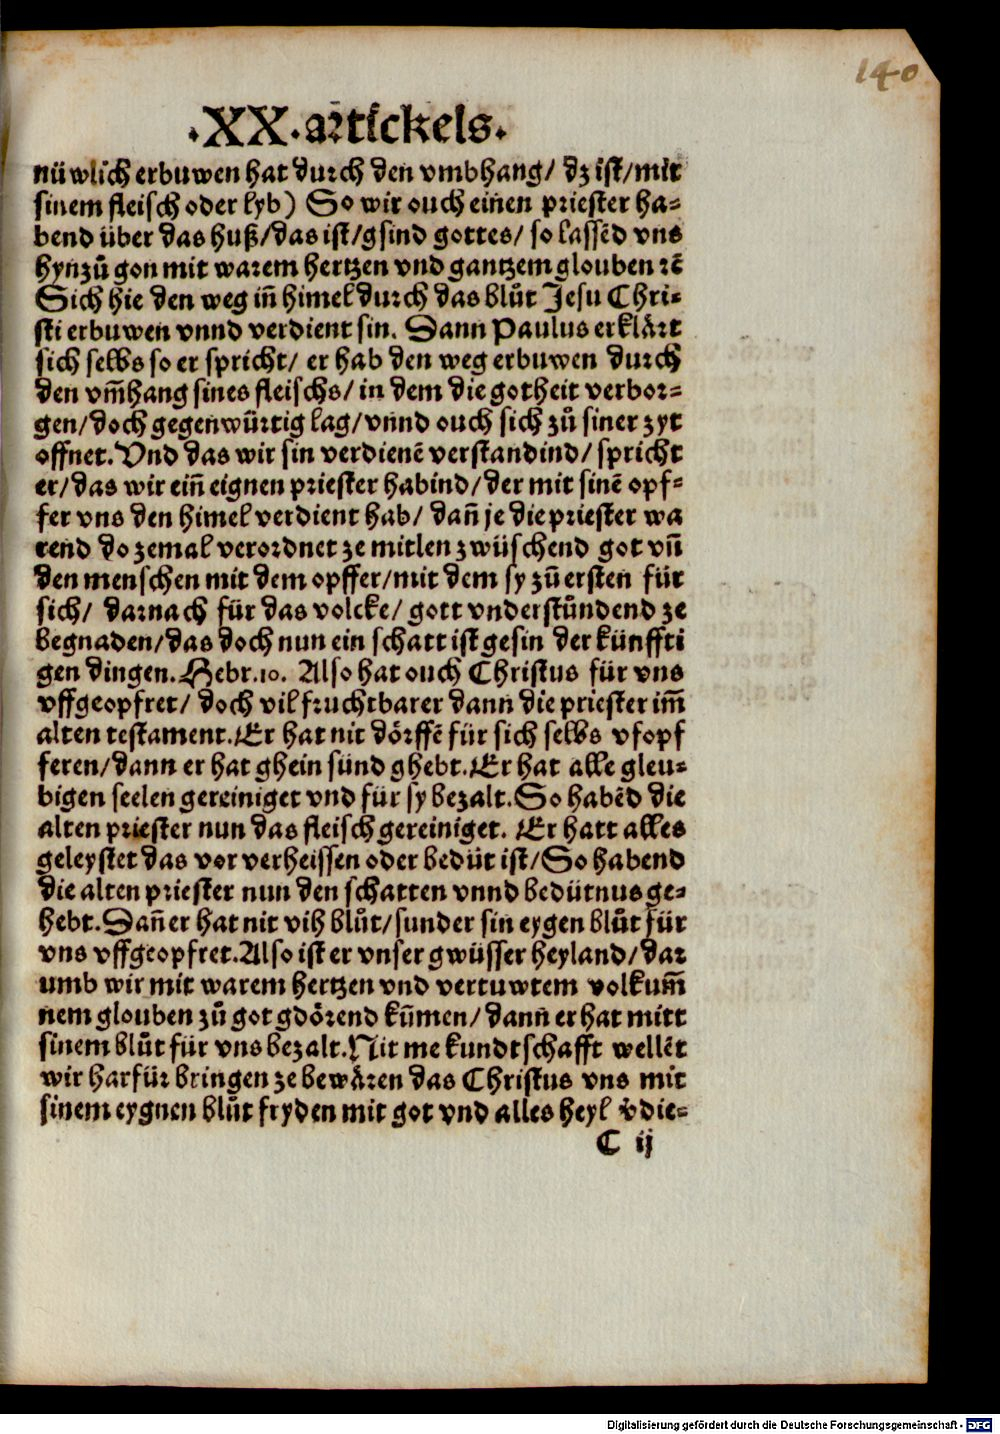 140
·XX·artickels.
nüwlich erbuwen hat durch den vmbhang/ dz ist/mit
sinem fleisch oder lyb) So wir ouch einen priester ha-
bend über das huß/das ist/gsind gottes/ so lassēd vns
hynzů gon mit warem hertzen vnd gantzem glouben rc̄
Sich hie den weg iñ himel durch das blůt Jesu Chri-
sti erbuwen vnnd verdient sin. Dann Paulus erklärt
sich selbs so er spricht/ er hab den weg erbuwen durch
den vm̄hang sines fleischs/ in dem die gotheit verbor-
gen/doch gegenwürtig lag/vnnd ouch sich zů siner zyt
offnet. Vnd das wir sin verdienē verstandind/ spricht
er/das wir eiñ eignen priester habind/der mit sinē opf-
fer vns den himel verdient hab/ dañ je die priester wa
rend do zemal verordnet ze mitlen zwüschend got vñ
den menschen mit dem opffer/mit dem sy zů ersten für
sich/ darnach für das volcke/ gott vnderstůndend ze
begnaden/das doch nun ein schatt ist gesin der künffti
gen dingen. Hebr.10. Also hat ouch Christus für vns
vffgeopfret/ doch vil fruchtbarer dann die priester im̄
alten testament. Er hat nit dörffē für sich selbs vfopf
feren/dann er hat ghein sünd ghebt. Er hat alle gleu-
bigen seelen gereiniget vnd für sy bezalt. So habēd die
alten priester nun das fleisch gereiniget. Er hatt alles
geleystet das vor verheissen oder bedüt ist/So habend
die alten priester nun den schatten vnnd bedütnus ge-
hebt. Dañ er hat nit vih blůt/sunder sin eygen blůt für
vns vffgeopfret. Also ist er vnser gwüsser heyland/dar
umb wir mit warem hertzen vnd vertuwtem volkum̄
nem glouben zů got gdörend kūmen/dann er hat mitt
sinem blůt für vns bezalt. Nit me kundtschafft wellēt
wir harfür bringen ze bewären das Christus vns mit
sinem eygnen blůt fryden mit got vnd alles heyl v̄die-
C ij
Digitalisierung gefördert durch die Deutsche Forschungsgemeinschaft - DFG